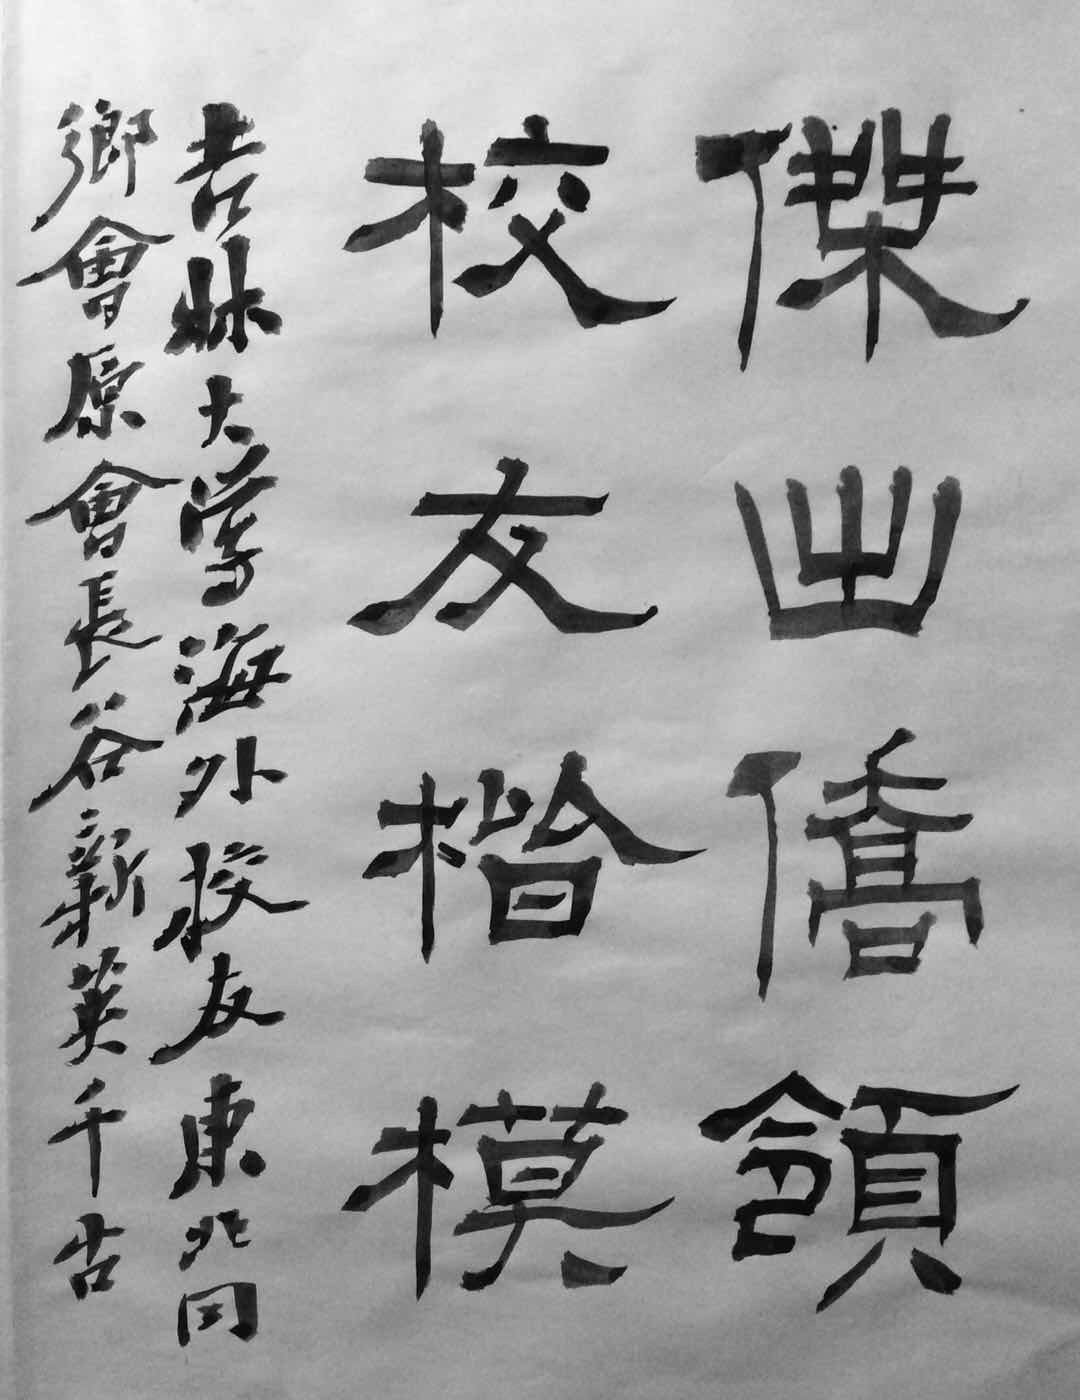 傑出僑領
校友楷模
吉林大學海外校友東北同
鄉會原會長谷新英千古